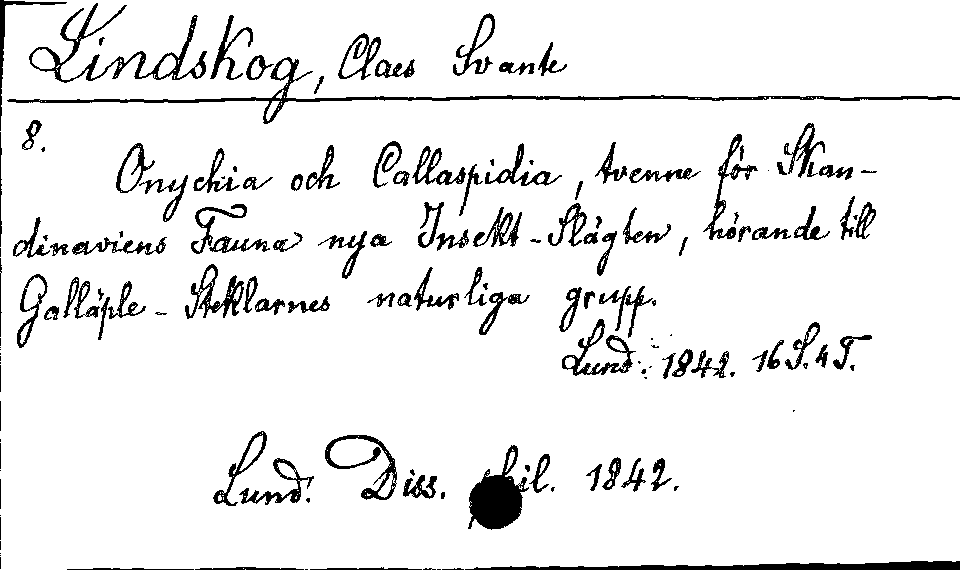 Lindskog, Claes Svante
8.
Onychia och Callaspidia, tvenne för Skan-
dinaviens Fauna nya Insekt-Slägten, hörande till
Galläple-Steklarnes naturliga grupp.
Lund. 1842. 16 S. 4 T.
Lund. Diss. phil. 1842.